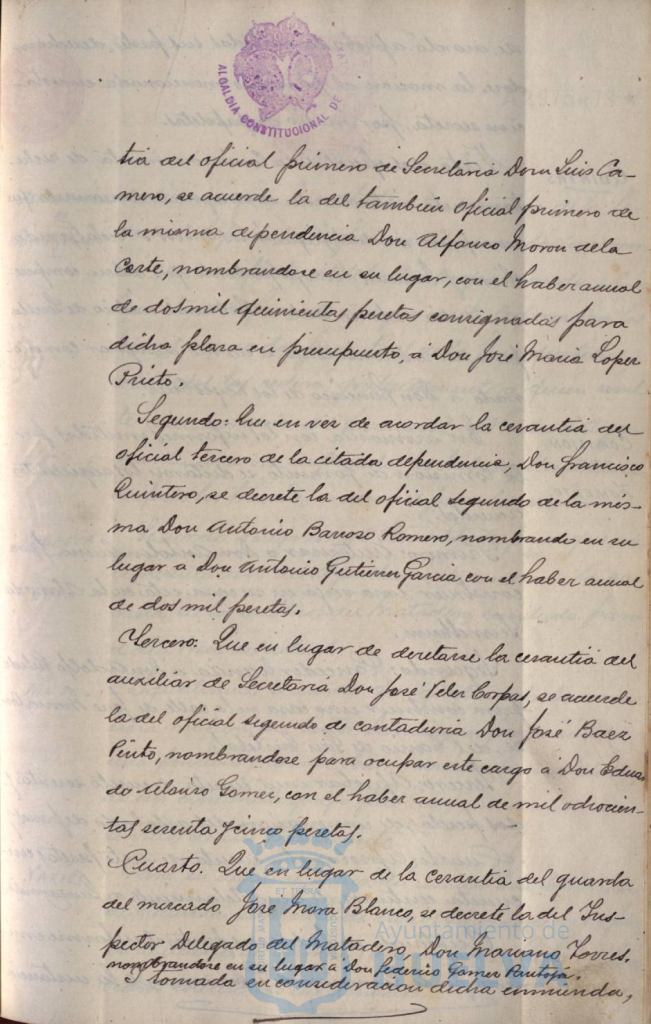 ALCALDIA CONSTITUCIONAL DE
tia del oficial primero de Secretaria Don Luis Ca-
mero, se acuerde la del tambien oficial primero de
la misma dependencia Don Alfonso Moron dela
Corte, nombrandose en su lugar, con el haber anual
de dosmil quinientas pesetas consignadas para
dicha plaza en presupuesto, á Don José Maria Lopez
Prieto.
Segundo: Que en vez de acordar la cesantia del
oficial tercero de la citada dependencia, Don Francisco
Quintero, se decrete la del oficial segundo de la mis-
ma Don Antonio Barroso Romero, nombrando en su
lugar á Don Antonio Gutierrez Garcia con el haber anual
de dos mil pesetas.
Tercero: Que en lugar de decretarse la cesantia del
auxiliar de Secretaria Don José Velez Corpas, se acuerde
la del oficial segundo de contaduria Don José Baez
Pinto, nombrandose para ocupar este cargo á Don Eduar-
do Alonso Gomez, con el haber anual de mil ochocien-
tas sesenta y cinco pesetas.
Cuarto. Que en lugar de la cesantia del guarda
del mercado José Mora Blanco, se decrete la del Ins-
pector Delegado del Matadero Don Mariano Torres.
nombrandose en su lugar á Don Federico Gomez Pantoja.
Y tomada en consideracion dicha enmienda,
Ayuntamiento de
HUELVA